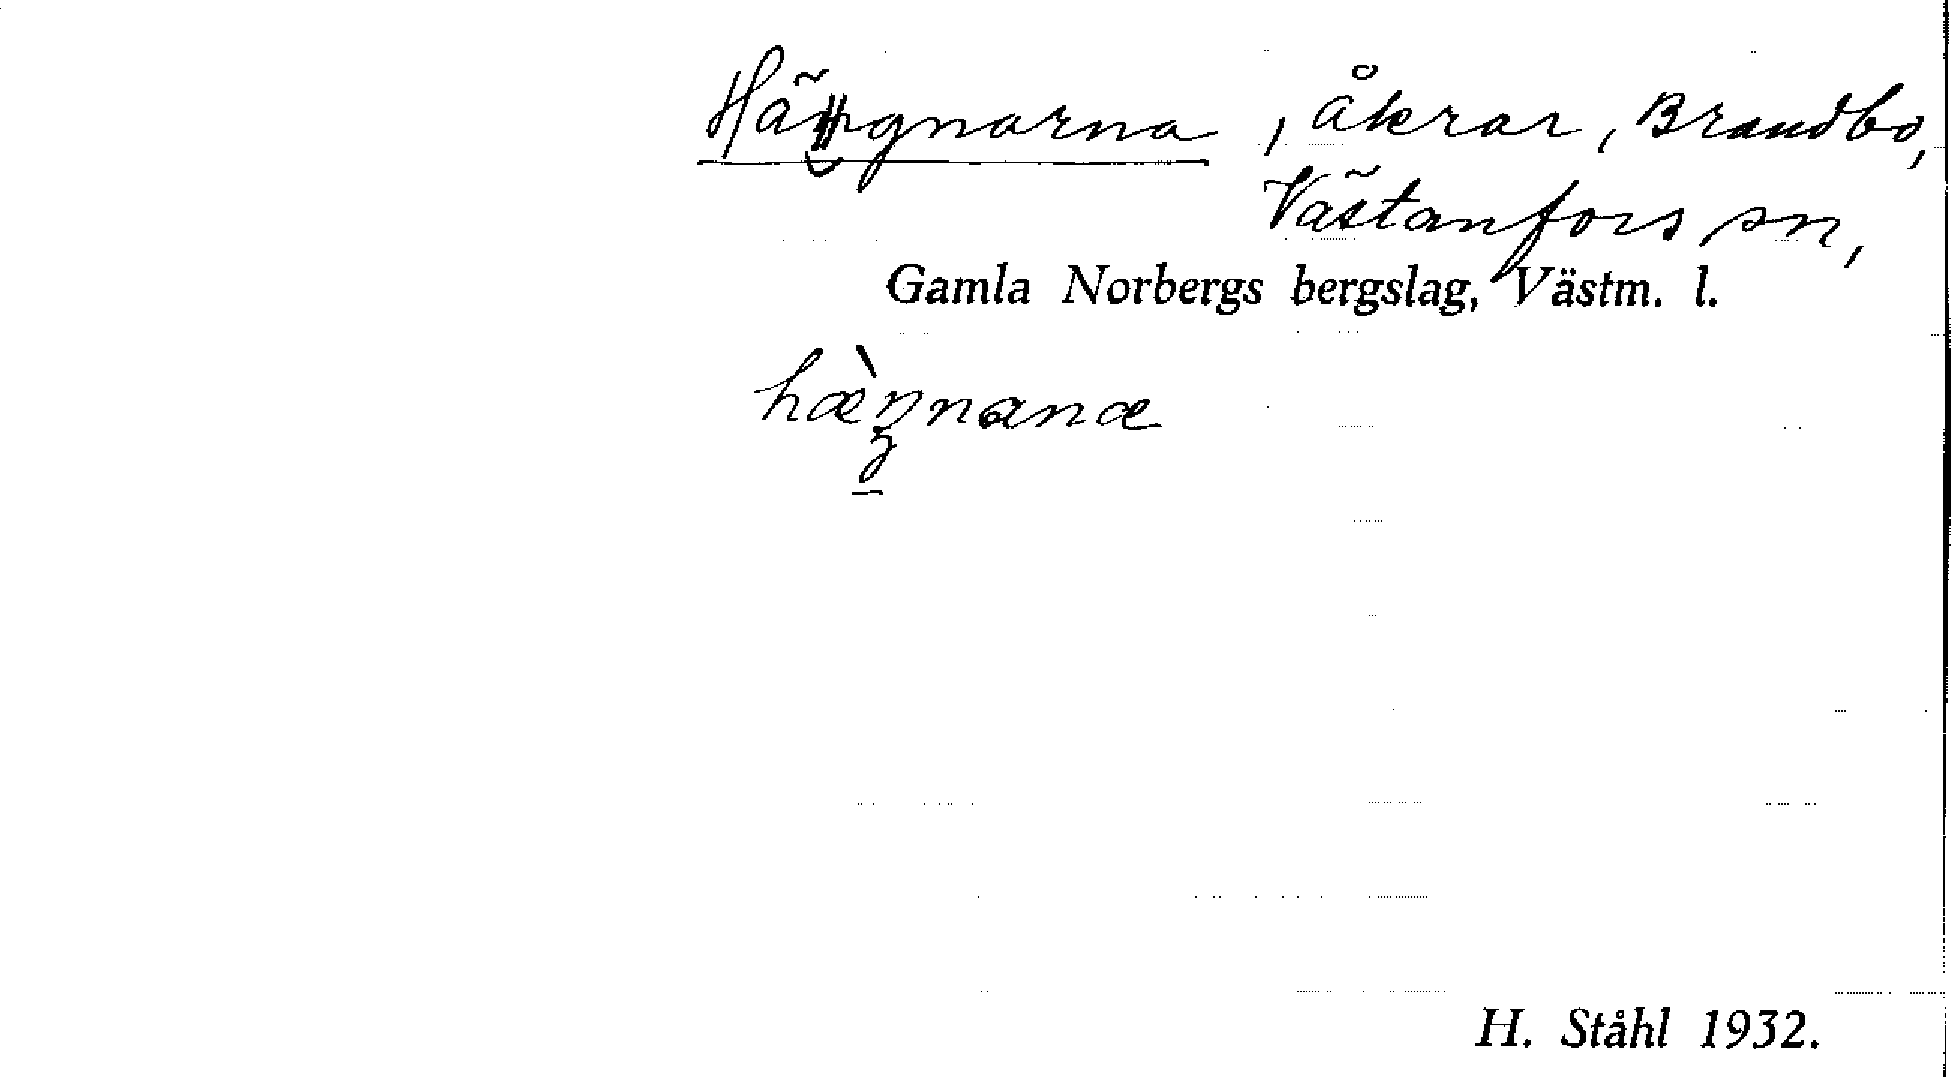 Hägnarna, åkrar, Brandbo,
Västanfors sn,
Gamla Norbergs bergslag, Västm. l.
hæ̀ŋnanæ
H. Ståhl 1932.